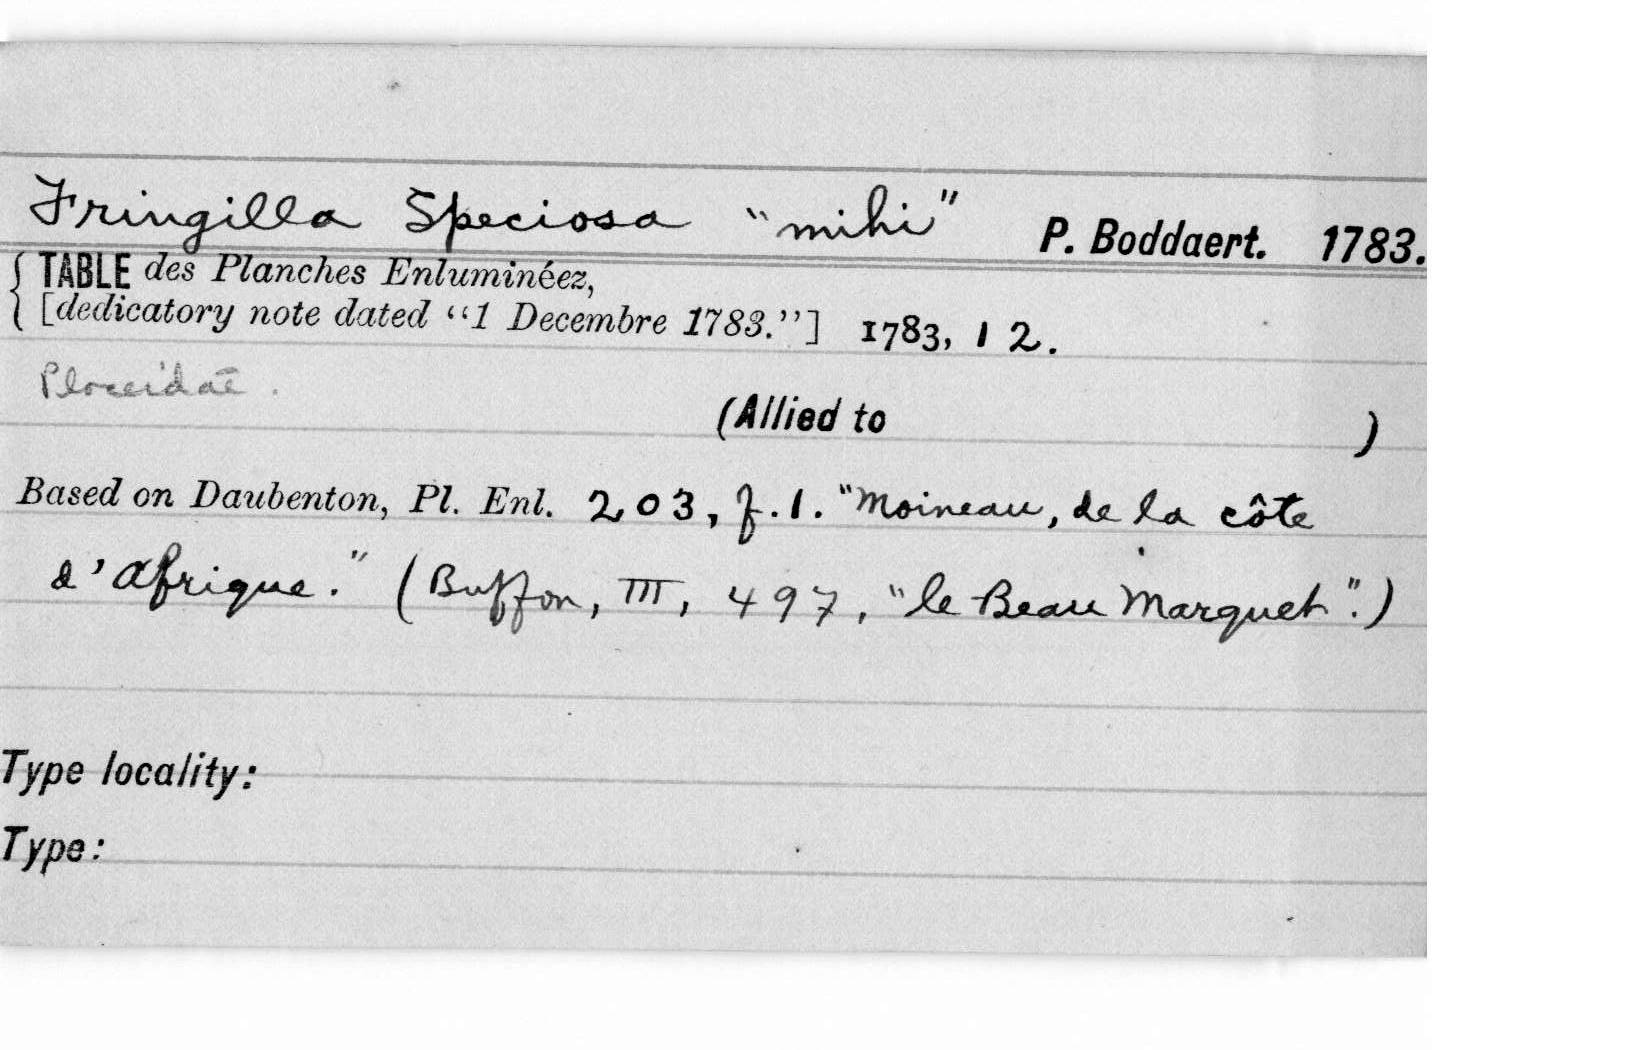 Fringilla Speciosa "mihi" P. Boddaert. 1783.
TABLE des Planches Enluminéez,
[dedicatory note dated "1 Decembre 1783."] 1783, 12.
Ploceidae.
(Allied to )
Based on Daubenton, Pl. Enl. 203, f.1. "Moineau, de la côte
d'Afrique." (Buffon, III, 497, "le Beau Marquet".)
Type locality:
Type: